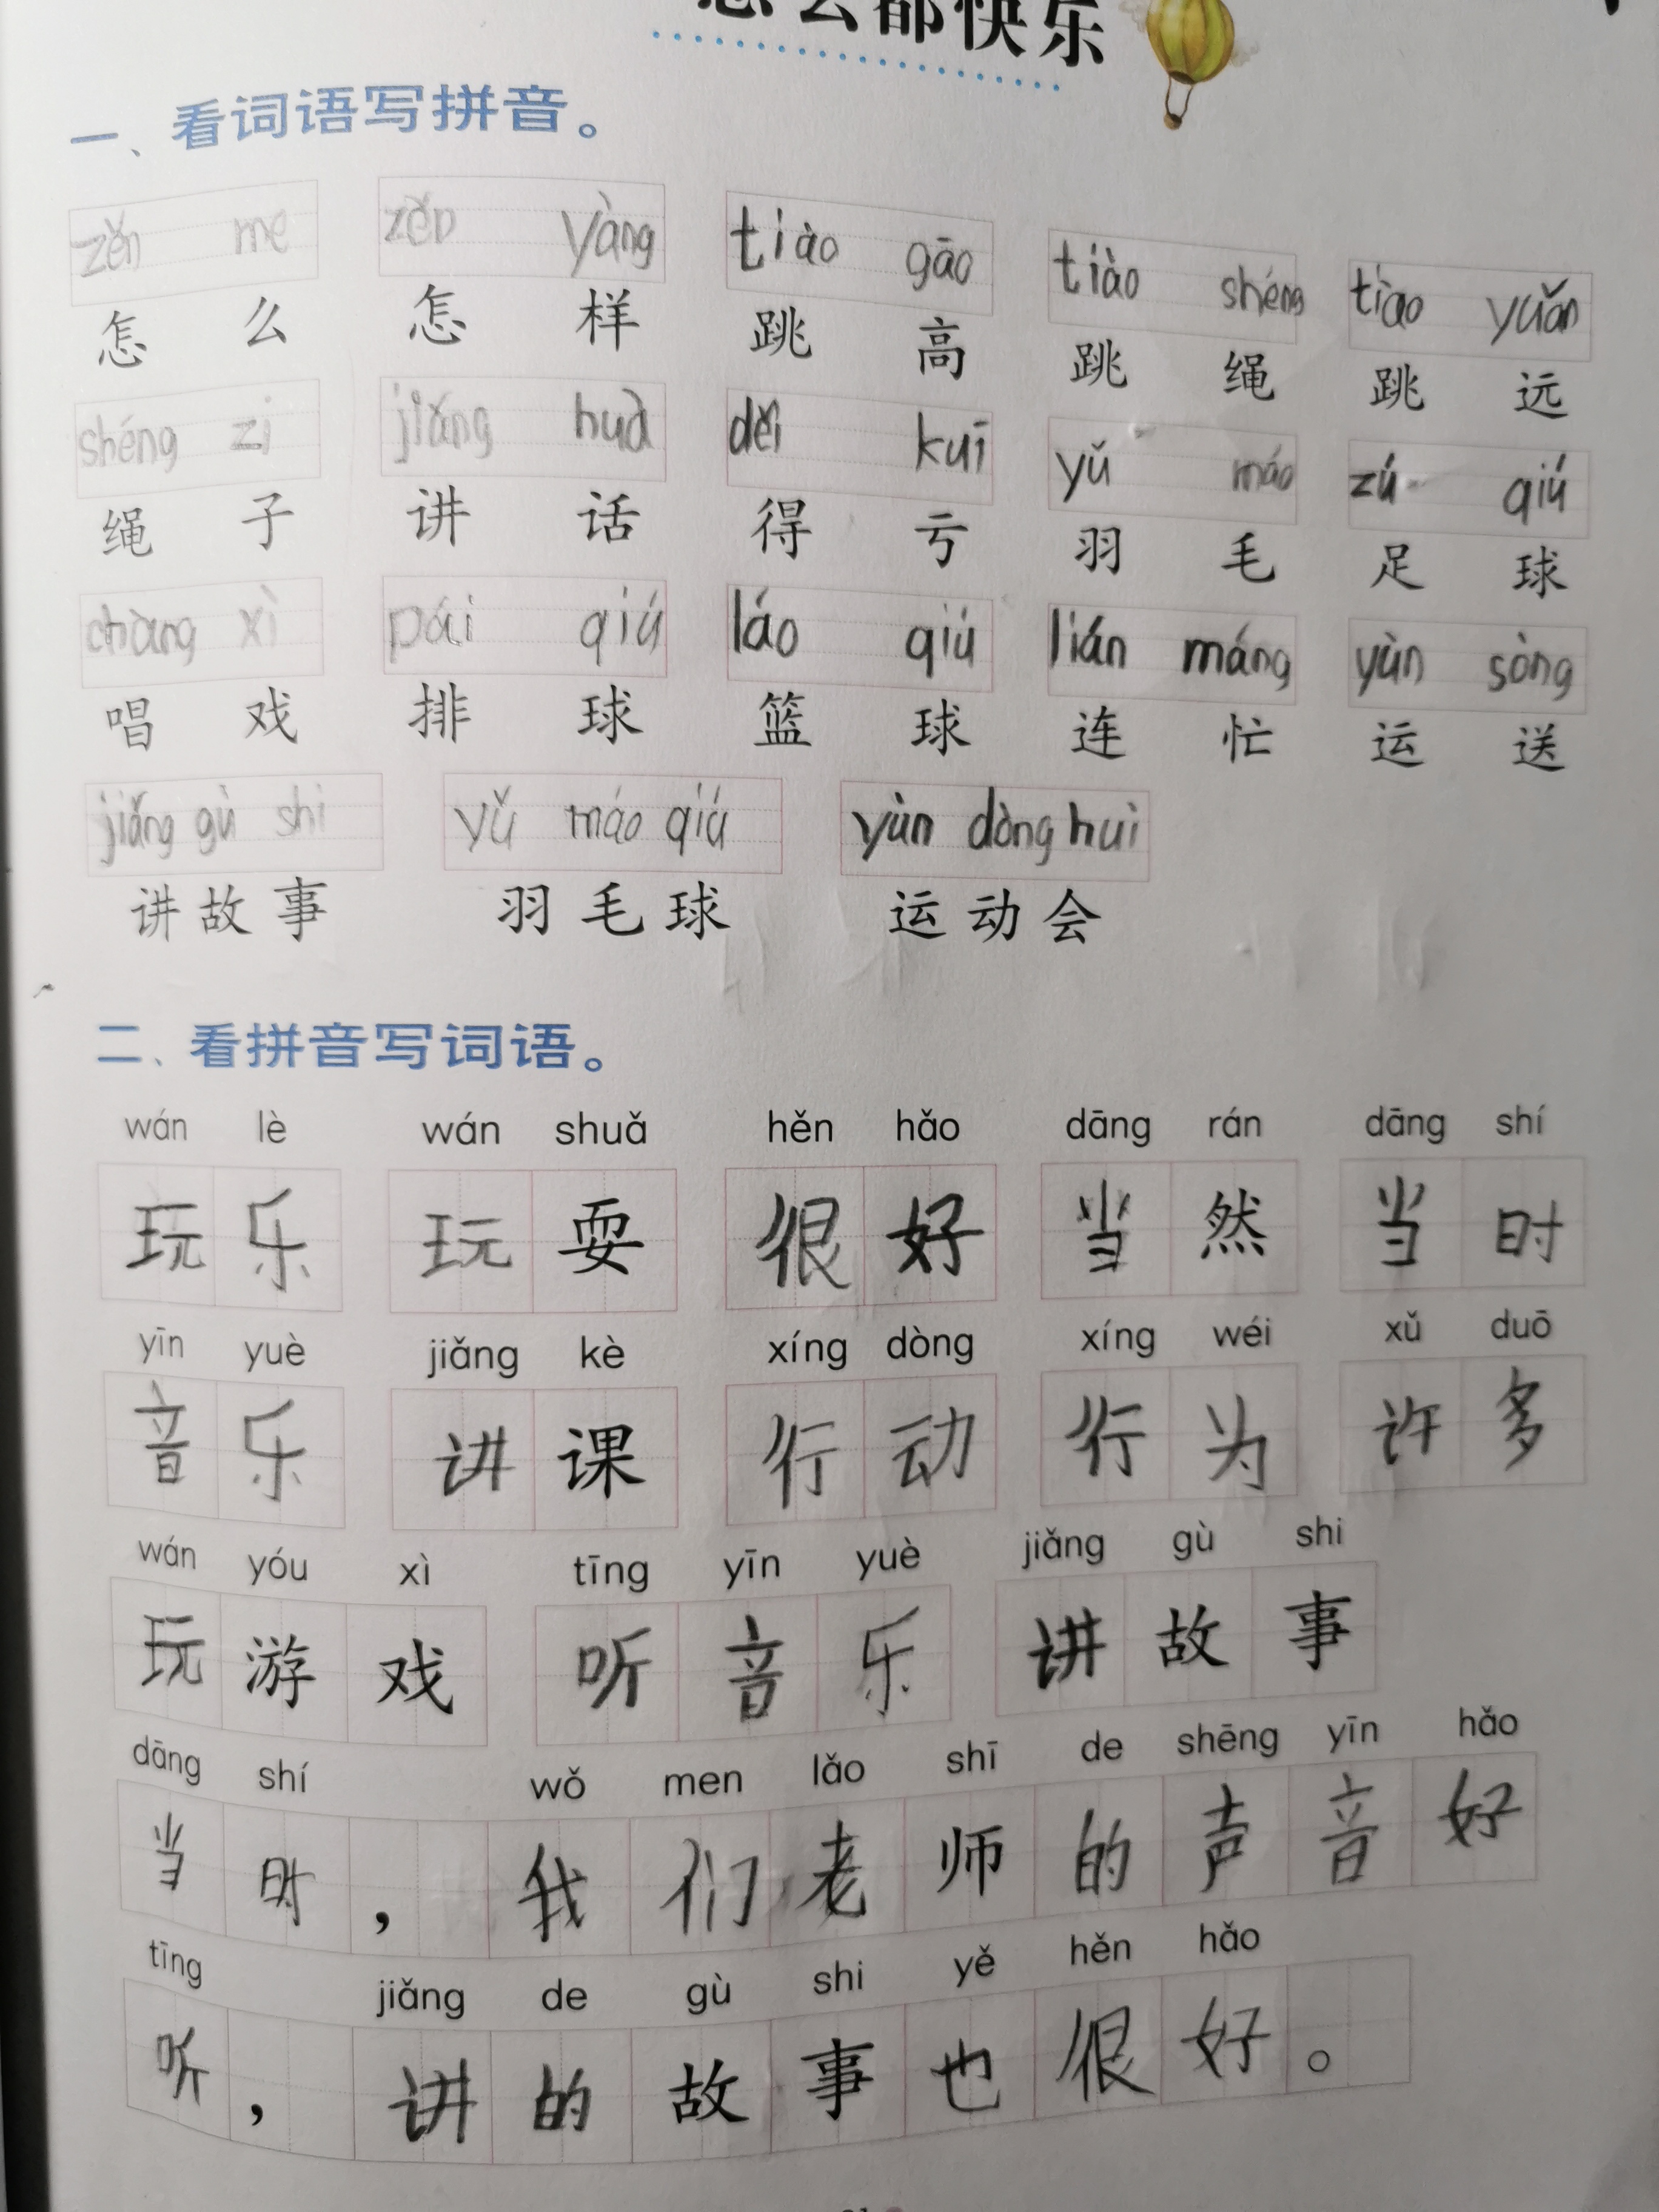 怎么都快乐
一、看词语写拼音。
zěn me zěn yàng tiào gāo tiào shéng tiào yuǎn
怎么 怎样 跳高 跳绳 跳远
shéng zi jiǎng huà děi kuī yǔ máo zú qiú
绳子 讲话 得亏 羽毛 足球
chàng xì pái qiú láo qiú lián máng yùn sòng
唱戏 排球 篮球 连忙 运送
jiǎng gù shi yǔ máo qiú yùn dòng huì
讲故事 羽毛球 运动会
二、看拼音写词语。
wán lè wán shuǎ hěn hǎo dāng rán dāng shí
玩乐 玩耍 很好 当然 当时
yīn yuè jiǎng kè xíng dòng xíng wéi xǔ duō
音乐 讲课 行动 行为 许多
wán yóu xì tīng yīn yuè jiǎng gù shi
玩游戏 听音乐 讲故事
dāng shí wǒ men lǎo shī de shēng yīn hǎo
当时，我们老师的声音好
tīng jiǎng de gù shi yě hěn hǎo
听，讲的故事也很好。